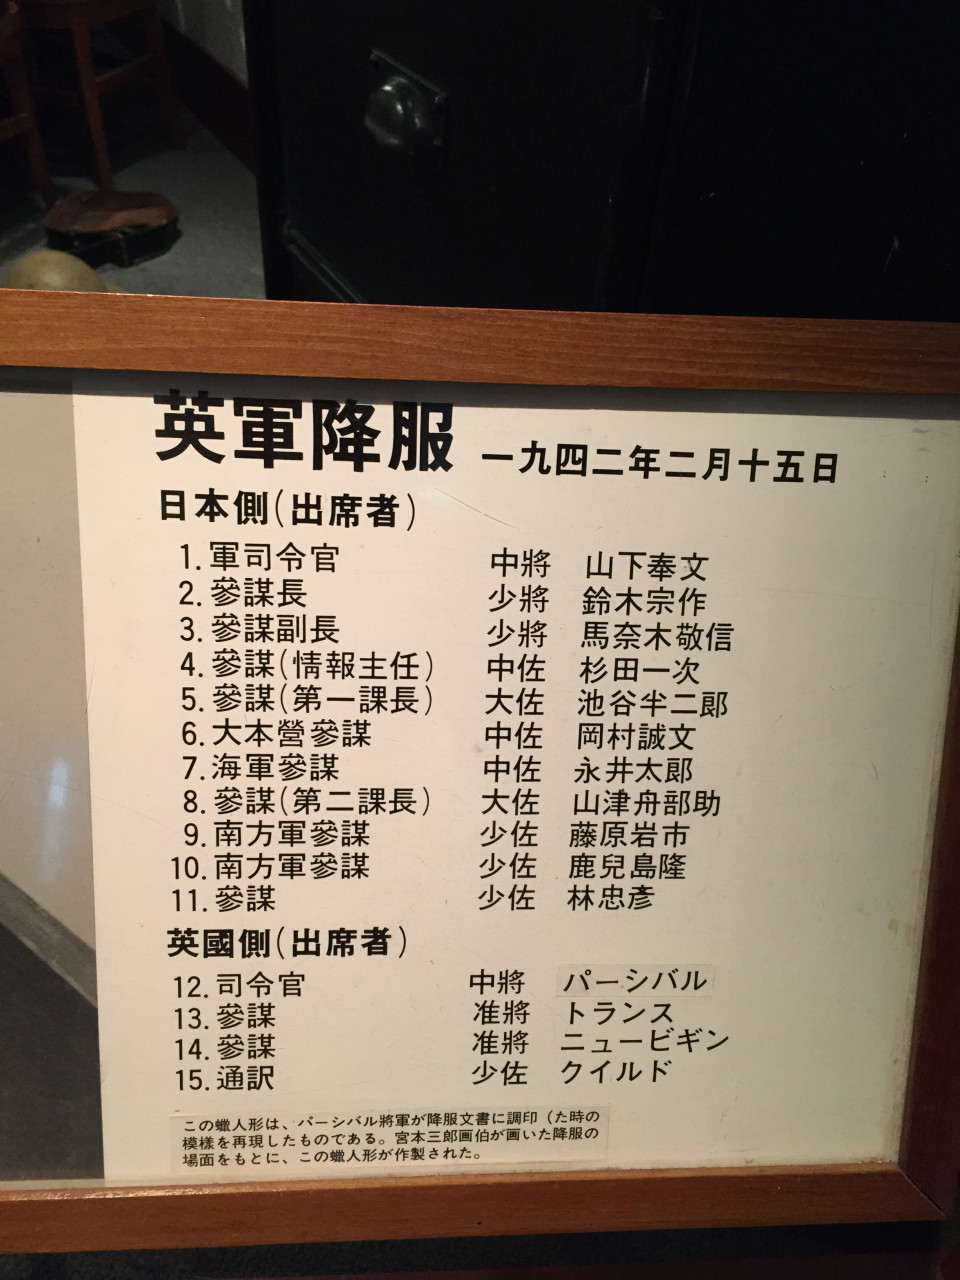 英軍降服 一九四二年二月十五日
日本側(出席者)
1. 軍司令官 中將 山下奉文
2. 參謀長 少將 鈴木宗作
3. 參謀副長 少將 馬奈木敬信
4. 參謀(情報主任) 中佐 杉田一次
5. 參謀(第一課長) 大佐 池谷半二郎
6. 大本營參謀 中佐 岡村誠文
7. 海軍參謀 中佐 永井太郎
8. 參謀(第二課長) 大佐 山津舟部助
9. 南方軍參謀 少佐 藤原岩市
10. 南方軍參謀 少佐 鹿兒島隆
11. 參謀 少佐 林忠彥
英國側(出席者)
12. 司令官 中將 パーシバル
13. 參謀 准將 トランス
14. 參謀 准將 ニュービギン
15. 通訳 少佐 クイルド
この蠟人形は、パーシバル將軍が降服文書に調印(た時の
模様を再現したものである。宮本三郎画伯が画いた降服の
場面をもとに、この蠟人形が作製された。